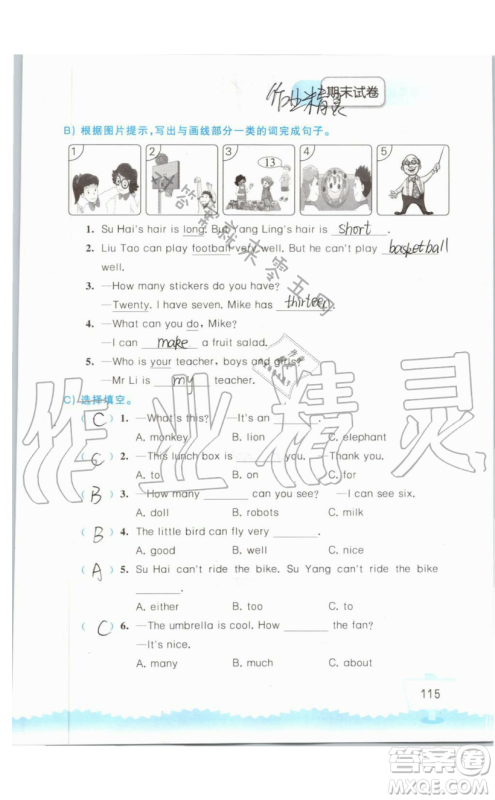 作业精灵
期末试卷
B) 根据图片提示，写出与画线部分一类的词完成句子。
1 2 3 4 5
13
1. Su Hai's hair is long. But Yang Ling's hair is short.
2. Liu Tao can play football very well. But he can't play basketball
well.
3. —How many stickers do you have?
—Twenty. I have seven. Mike has thirteen.
4. —What can you do, Mike?
—I can make a fruit salad.
5. —Who is your teacher, boys and girls?
—Mr Li is my teacher.
C) 选择填空。
( C ) 1. —What's this? —It's an ______.
A. monkey B. lion C. elephant
( C ) 2. —This lunch box is ______ you. —Thank you.
A. to B. on C. for
( B ) 3. —How many ______ can you see? —I can see six.
A. doll B. robots C. milk
( B ) 4. The little bird can fly very ______.
A. good B. well C. nice
( A ) 5. Su Hai can't ride the bike. Su Yang can't ride the bike
______.
A. either B. too C. two
( C ) 6. —The umbrella is cool. How ______ the fan?
—It's nice.
A. many B. much C. about
115
作业精灵
答案就来零五网
答案圈